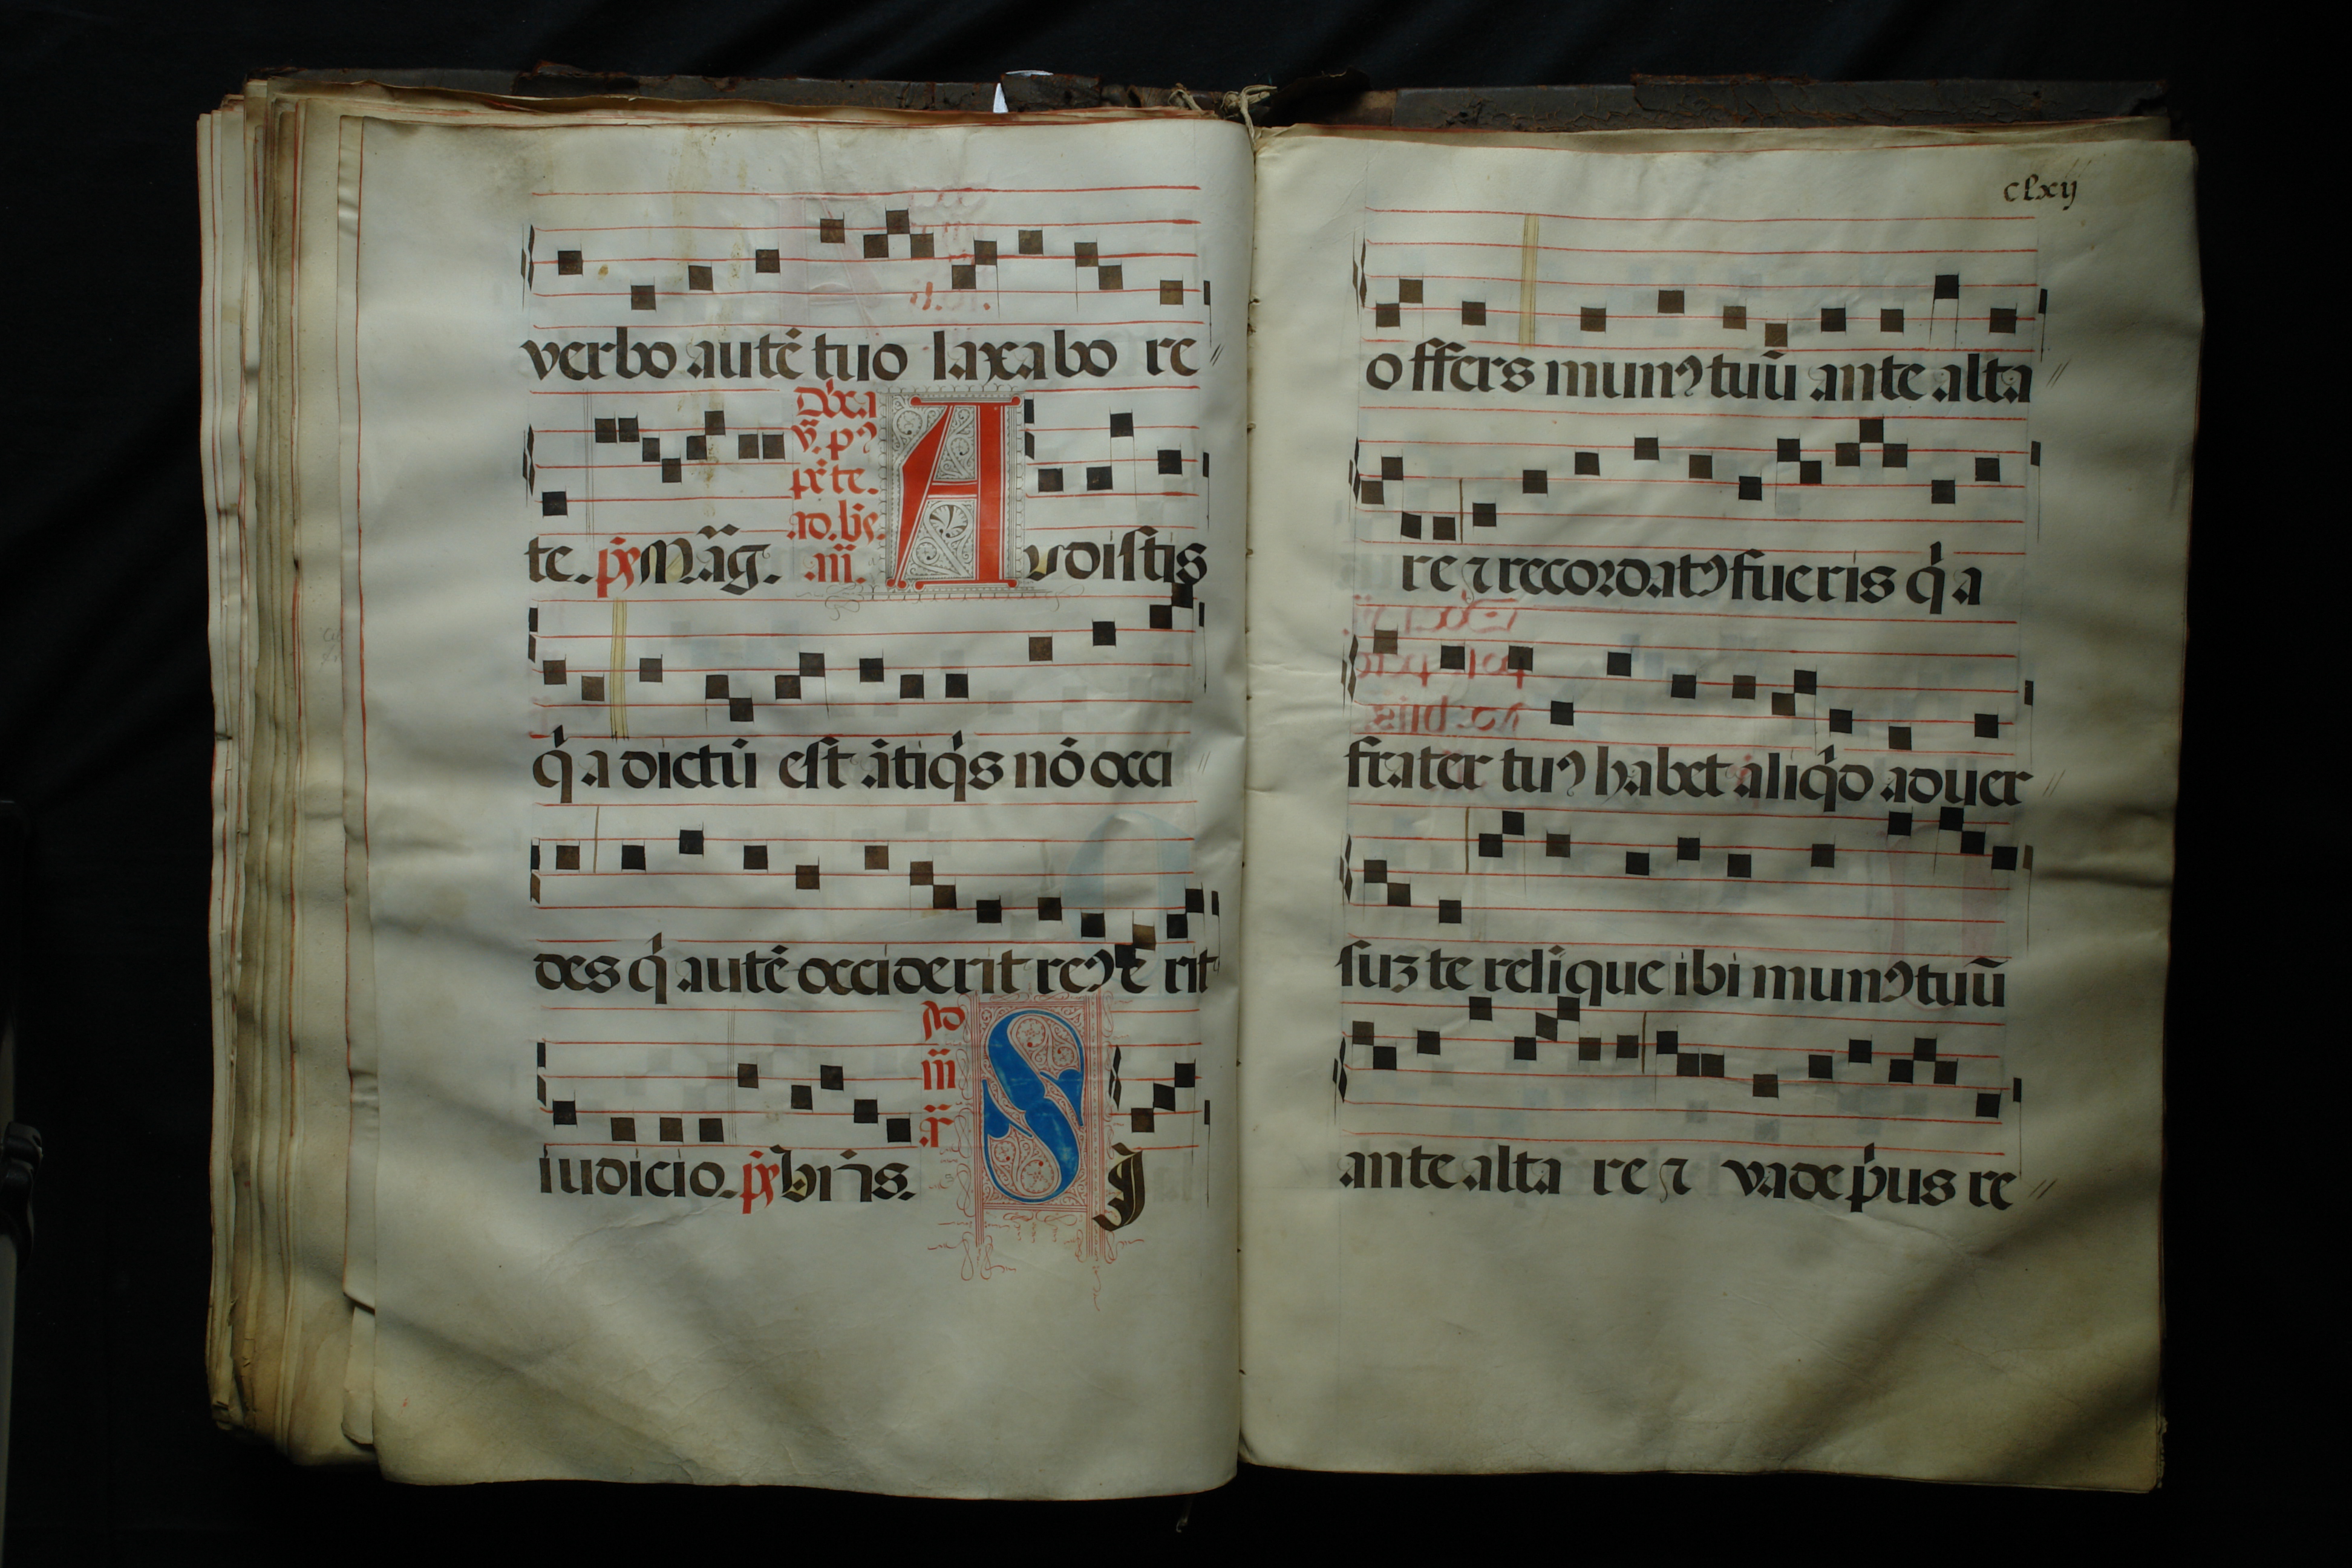 verbo autē tuo laxabo re
te. p̄s Māg.
Dn̄ca
v. pꝰ
pēte.
ad. bn̄s.
an̄.
Audistis
q̇a dictū est ātiq̇s nō occi
des q̇ autē occiderit reꝰ e rit
iudicio. p̄s bn̄s.
Ad
m̄
.r̄
SI
clxij
offers munꝰ tuū ante alta
re ⁊ recordatꝰ fueris q̇a
frater tuꝰ habet aliq̇d aduer
suꝫ te relique ibi munꝰ tuū
ante alta re ⁊ vade ṗus re